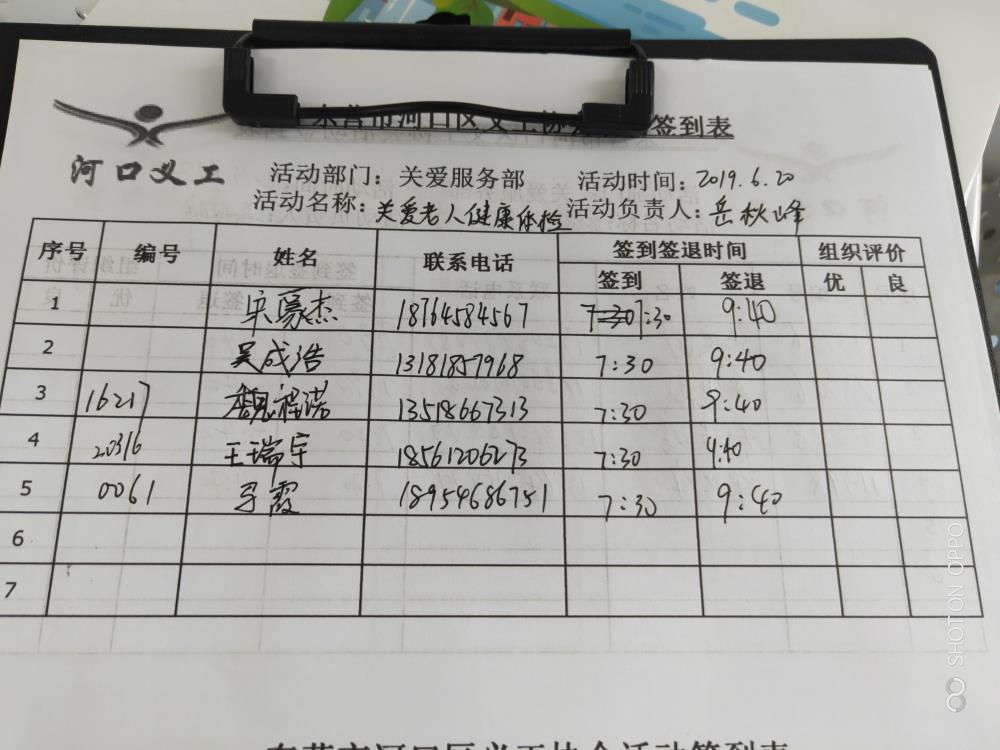 东营市河口区义工协会活动签到表
河口义工
活动部门：关爱服务部 活动时间：2019.6.20
活动名称：关爱老人健康体检 活动负责人：岳秋峰
序号 编号 姓名 联系电话 签到签退时间 组织评价
签到 签退 优 良
1 宋豪杰 18764584567 7:30 7:30 9:40
2 吴成浩 13181857968 7:30 9:40
3 16217 魏福诺 13518667313 7:30 9:40
4 20316 王瑞宇 18561206273 7:30 9:40
5 0061 霞 18954686751 7:30 9:40
6
7
东营市河口区义工协会活动签到表
SHOT ON OPPO